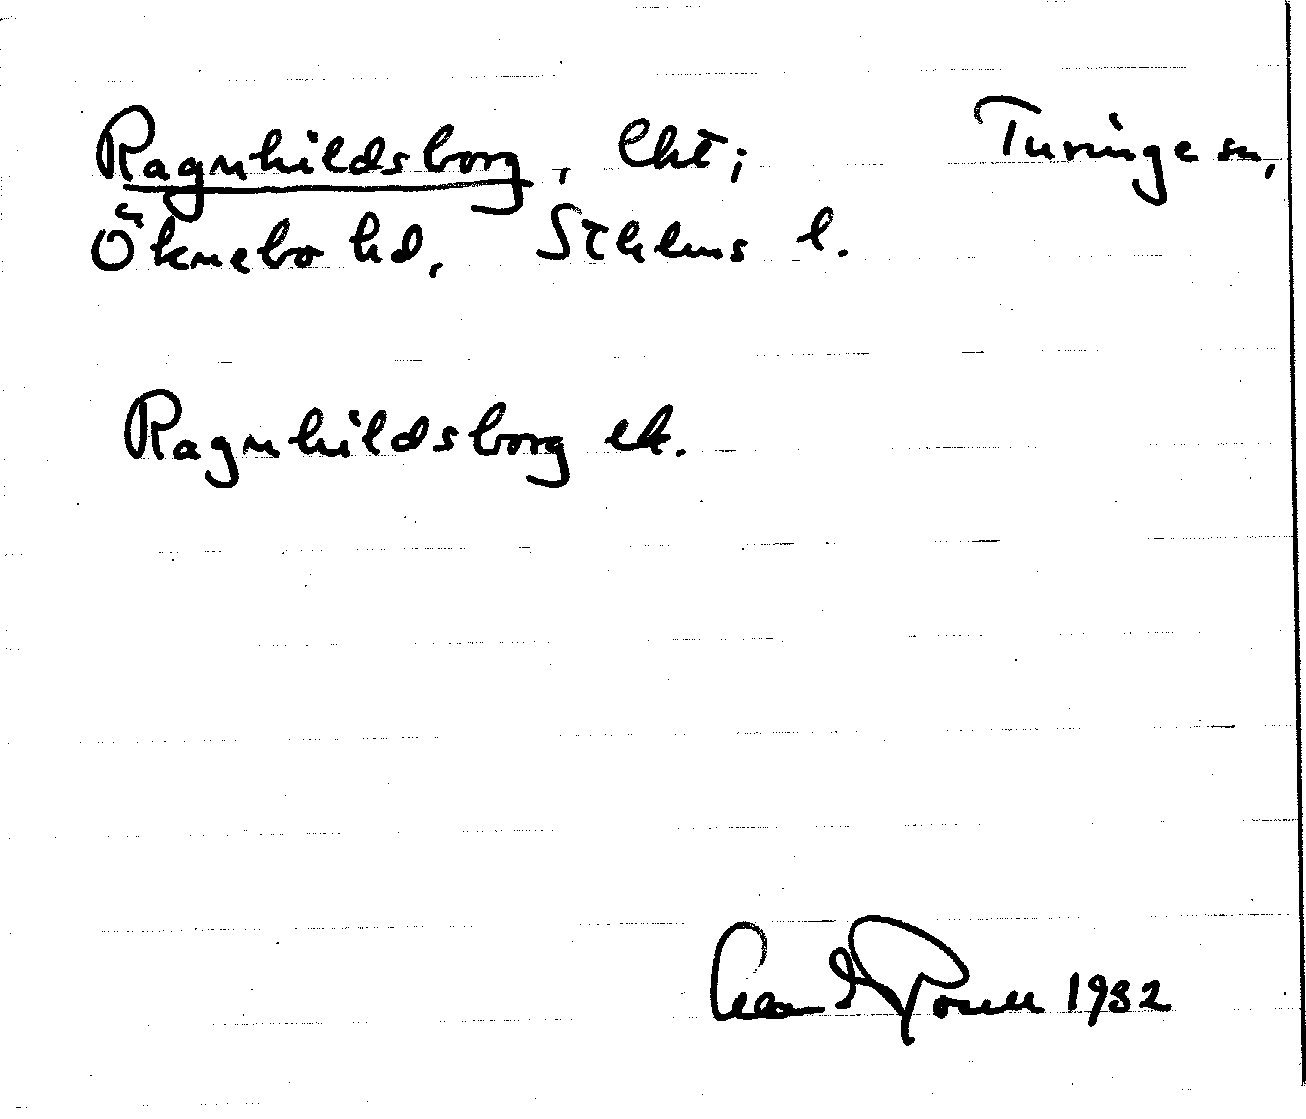 Ragnhildsborg, lht; Turinge sn,
Öknebo hd, Sthlms l.
Ragnhildsborg
1932